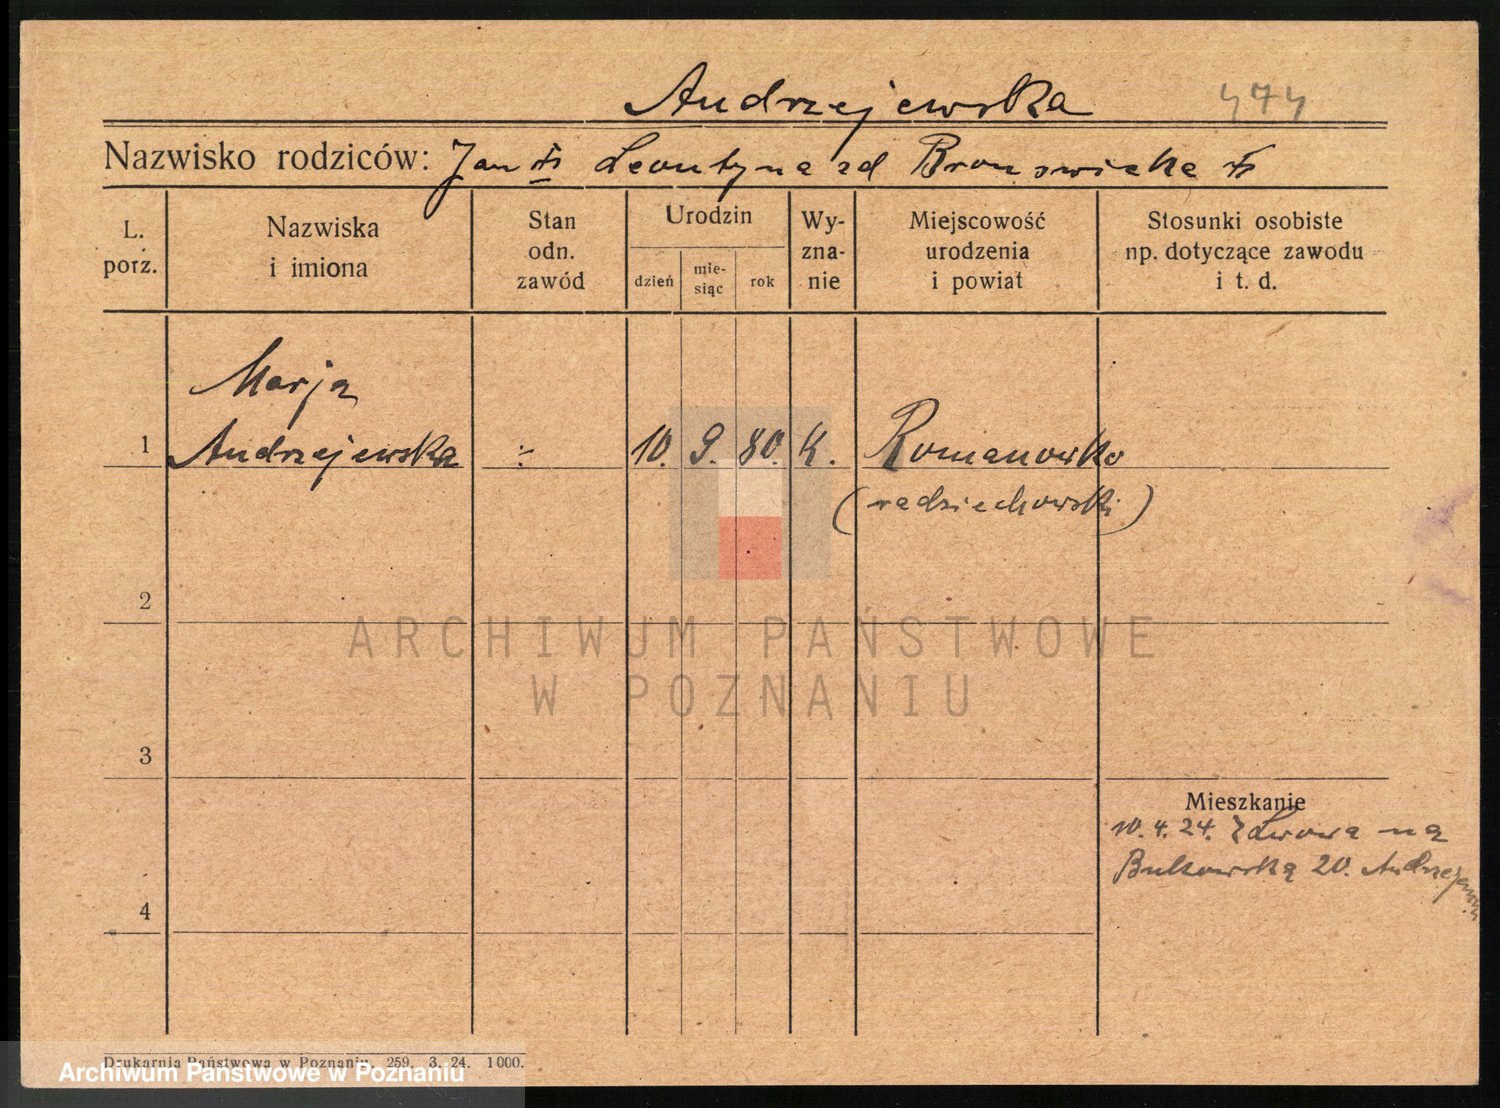 Andrzejewska 474
Nazwisko rodziców: Jan Leontyna zd Bronswicka
L. porz.
Nazwiska i imiona
Stan odn. zawód
Urodzin
dzień
mie-siąc
rok
Wy-zna-nie
Miejscowość urodzenia i powiat
Stosunki osobiste np. dotyczące zawodu i t. d.
Marja
1 Andrzejewska 10. 9. 80. K. Romanowko
(radziechowski)
2
ARCHIWUM PAŃSTWOWE
W POZNANIU
3
Mieszkanie
10.4.24. Z Lwowa na
Bukowską 20.
4
Drukarnia Państwowa w Poznaniu. 259. 3. 24. 1000.
Archiwum Państwowe w Poznaniu